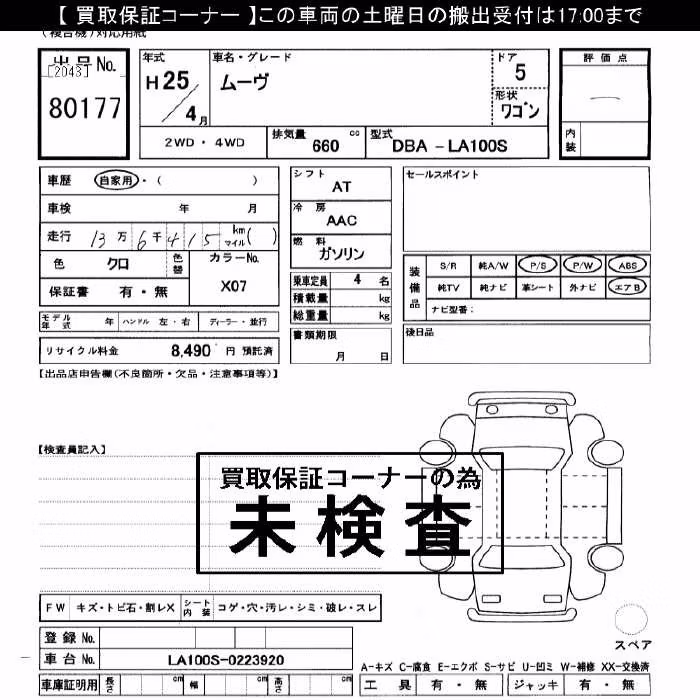 【 買取保証コーナー 】この車両の土曜日の搬出受付は17:00まで
(複合機)対応用紙
出品No.
[2043]
80177
年式
H25
4月
車名・グレード
ムーヴ
ドア
5
形状
ワゴン
2WD・4WD
排気量
660 cc
型式
DBA - LA100S
評価点
内装
車歴 自家用・( )
車検 年 月
走行 13万6千415 km マイル( )
色 クロ
色替
カラーNo.
X07
保証書 有・無
モデル年式 年 ハンドル 左・右 ディーラー・並行
リサイクル料金 8,490 円 預託済
シフト
AT
冷房
AAC
燃料
ガソリン
乗車定員 4 名
積載量 kg
総重量 kg
書類期限
月 日
セールスポイント
装備品
S/R 純A/W P/S P/W ABS
純TV 純ナビ 革シート 外ナビ エアB
ナビ型番:
後日品
【出品店申告欄(不良箇所・欠品・注意事項等)】
【検査員記入】
買取保証コーナーの為
未検査
FW キズ・トビ石・割レX シート内装 コゲ・穴・汚レ・シミ・破レ・スレ
登録No.
車台No. LA100S-0223920
車庫証明用 長さ cm 幅 cm 高さ cm
スペア
A-キズ C-腐食 E-エクボ S-サビ U-凹ミ W-補修 XX-交換済
工具 有・無 ジャッキ 有・無